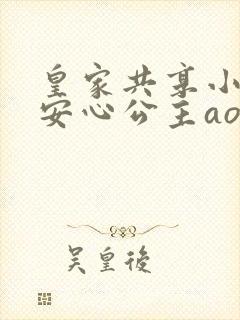 皇家共享小
安心公主ao
吴皇後